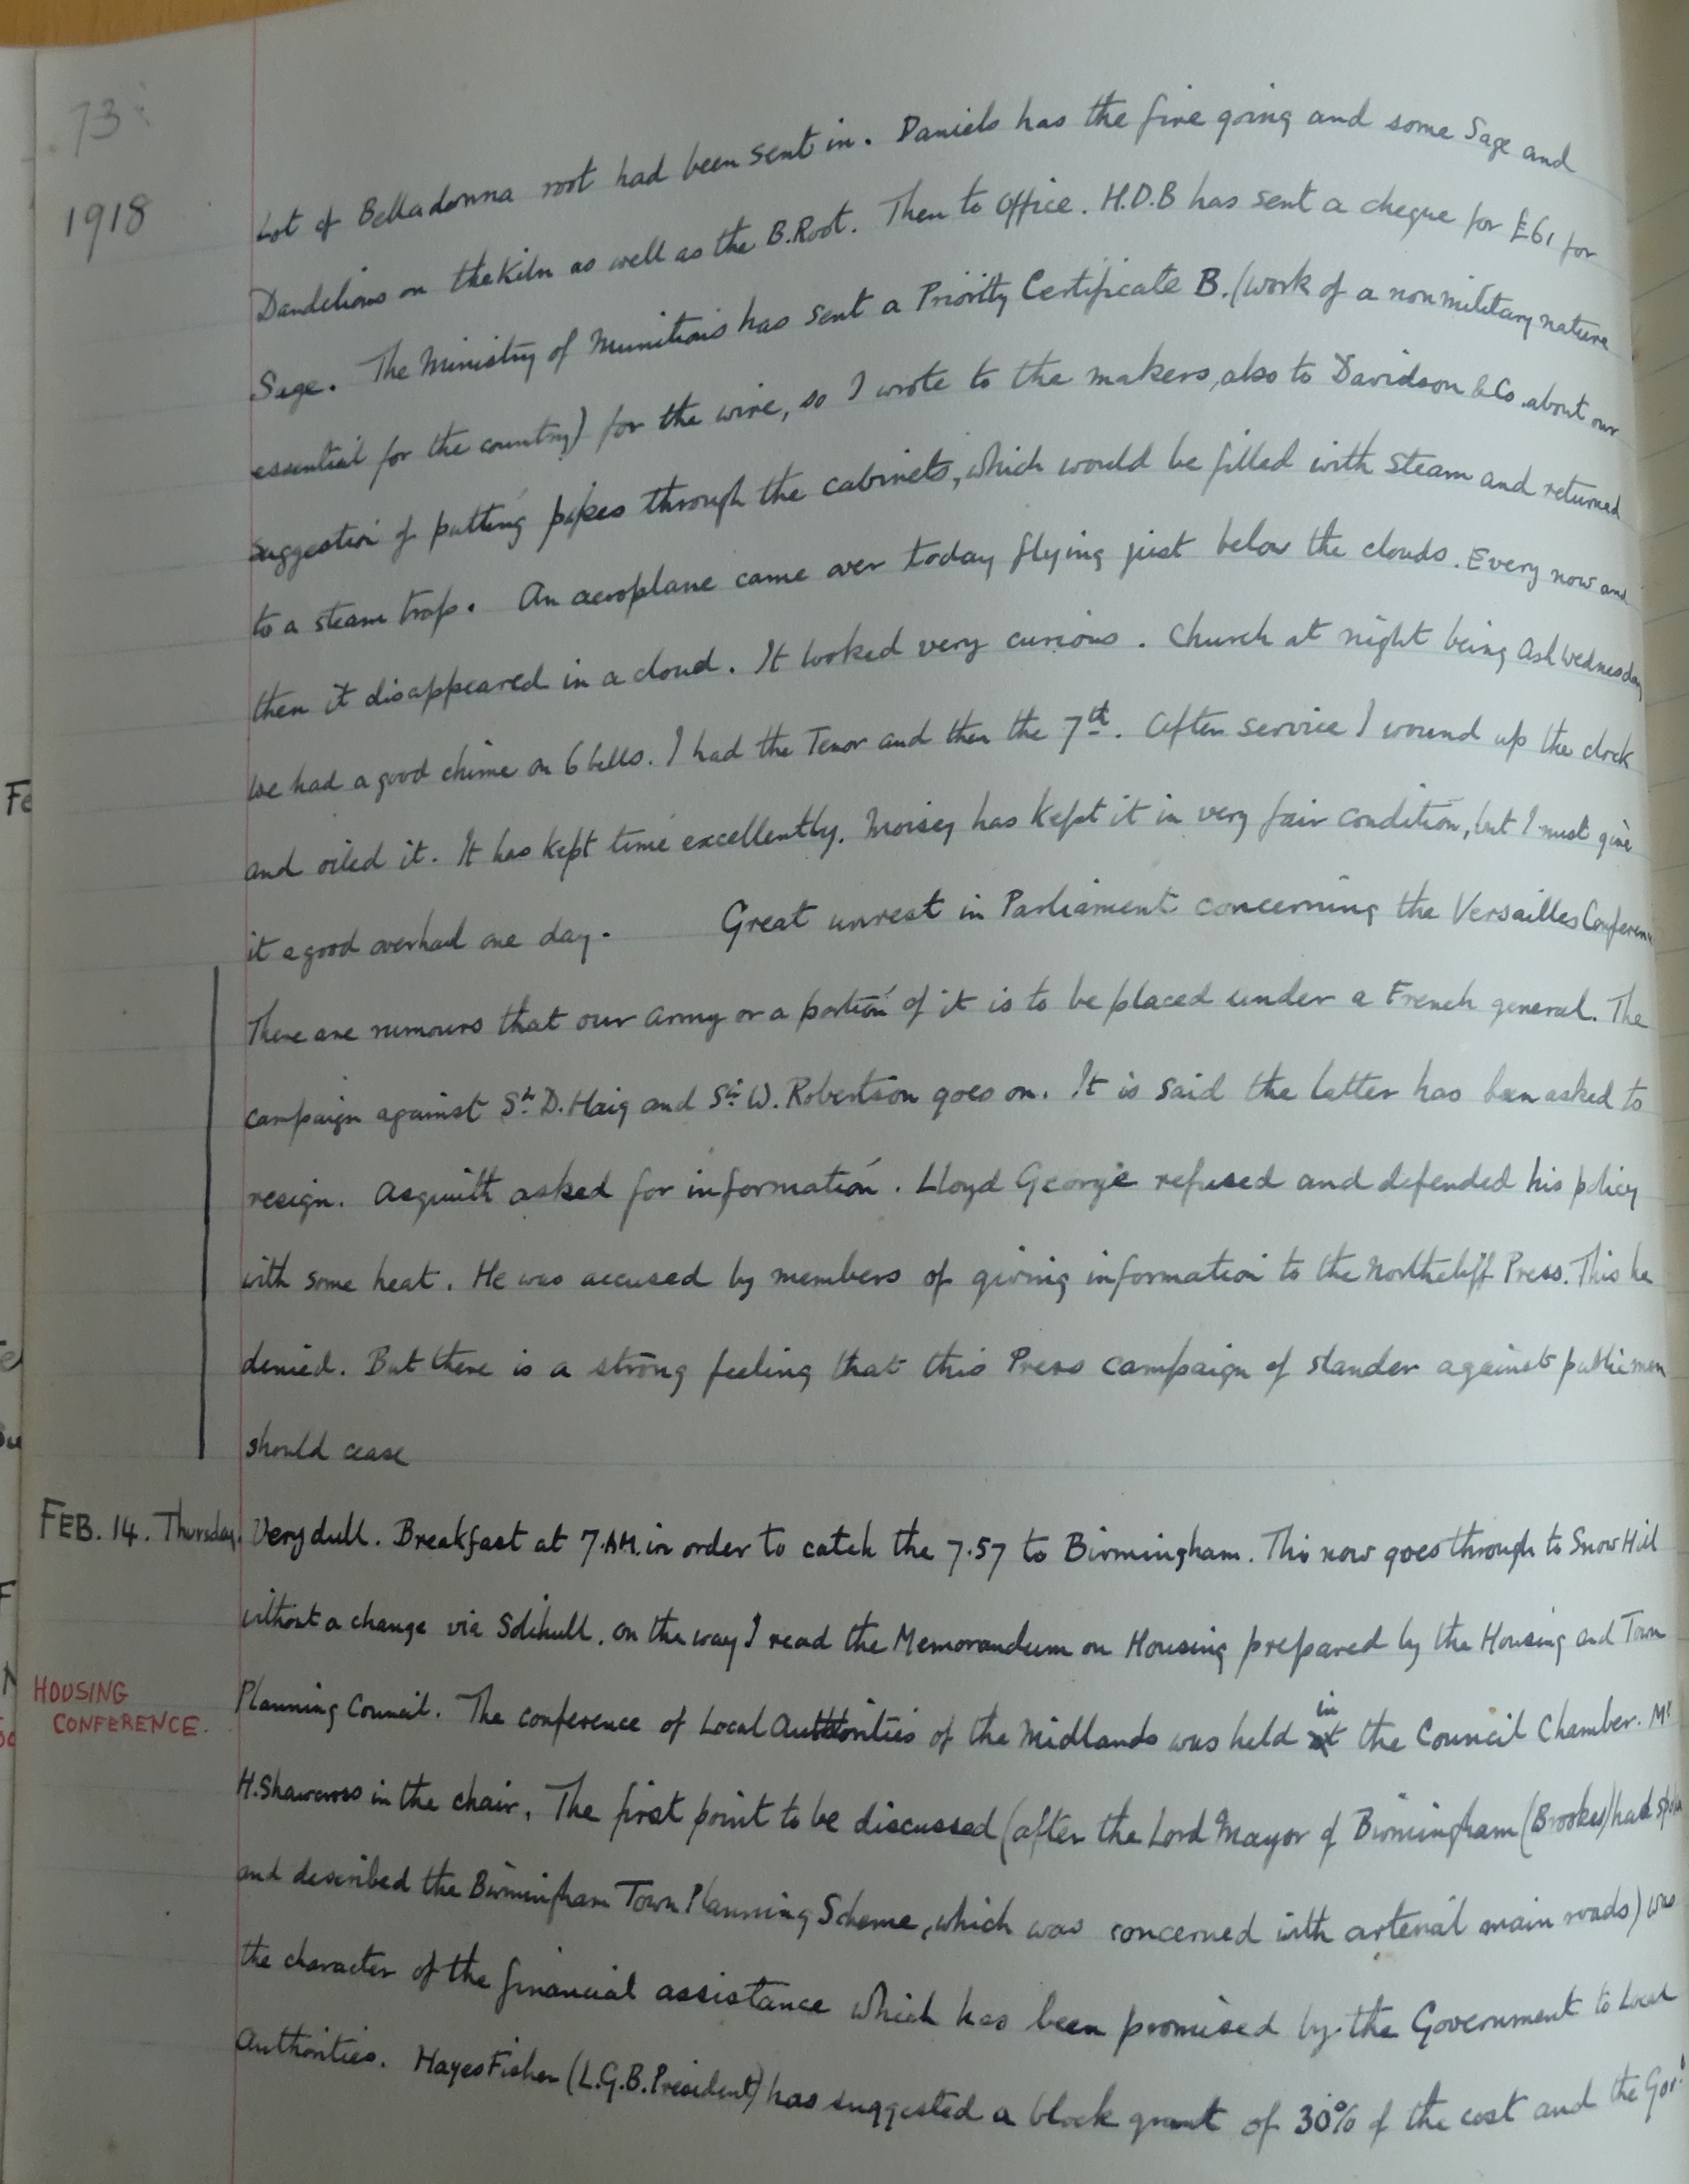 73
1918
Lot of Belladonna root had been sent in. Daniels has the fire going and some Sage and
Dandelions on the Kiln as well as the B.Root. Then to Office. H.D.B has sent a cheque for £61 for
Sage. The Ministry of Munitions has sent a Priority Certificate B. (work of a non military nature
essential for the country) for the wire, so I wrote to the makers, also to Davidson & Co. about our
suggestion of putting pipes through the cabinets, which would be filled with steam and returned
to a steam trap. An aeroplane came over today flying just below the clouds. Every now and
then it disappeared in a cloud. It looked very curious. Church at night being Ash Wednesday
We had a good chime on 6 bells. I had the Tenor and then the 7th. After service I wound up the clock
and oiled it. It has kept time excellently. Moisey has kept it in very fair condition, but I must give
it a good overhaul one day. Great unrest in Parliament concerning the Versailles Conference
There are rumours that our army or a portion of it is to be placed under a French general. The
campaign against Sir D. Haig and Sir W. Robertson goes on. It is said the latter has been asked to
resign. Asquith asked for information. Lloyd George refused and defended his policy
with some heat. He was accused by members of giving information to the Northcliff Press. This he
denied. But there is a strong feeling that this Press campaign of slander against public men
should cease
FEB. 14. Thursday. Very dull. Breakfast at 7.AM. in order to catch the 7.57 to Birmingham. This now goes through to Snow Hill
without a change via Solihull. On the way I read the Memorandum on Housing prepared by the Housing and Town
HOUSING
CONFERENCE.
Planning Council. The conference of Local Authorities of the Midlands was held in the Council Chamber. Mr
H. Shawcross in the chair. The first point to be discussed (after the Lord Mayor of Birmingham (Brookes) had spoken
and described the Birmingham Town Planning Scheme, which was concerned with arterial main roads) was
the character of the financial assistance which has been promised by the Government to Local
Authorities. Hayes Fisher (L.G.B. President) has suggested a block grant of 30% of the cost and the Govt